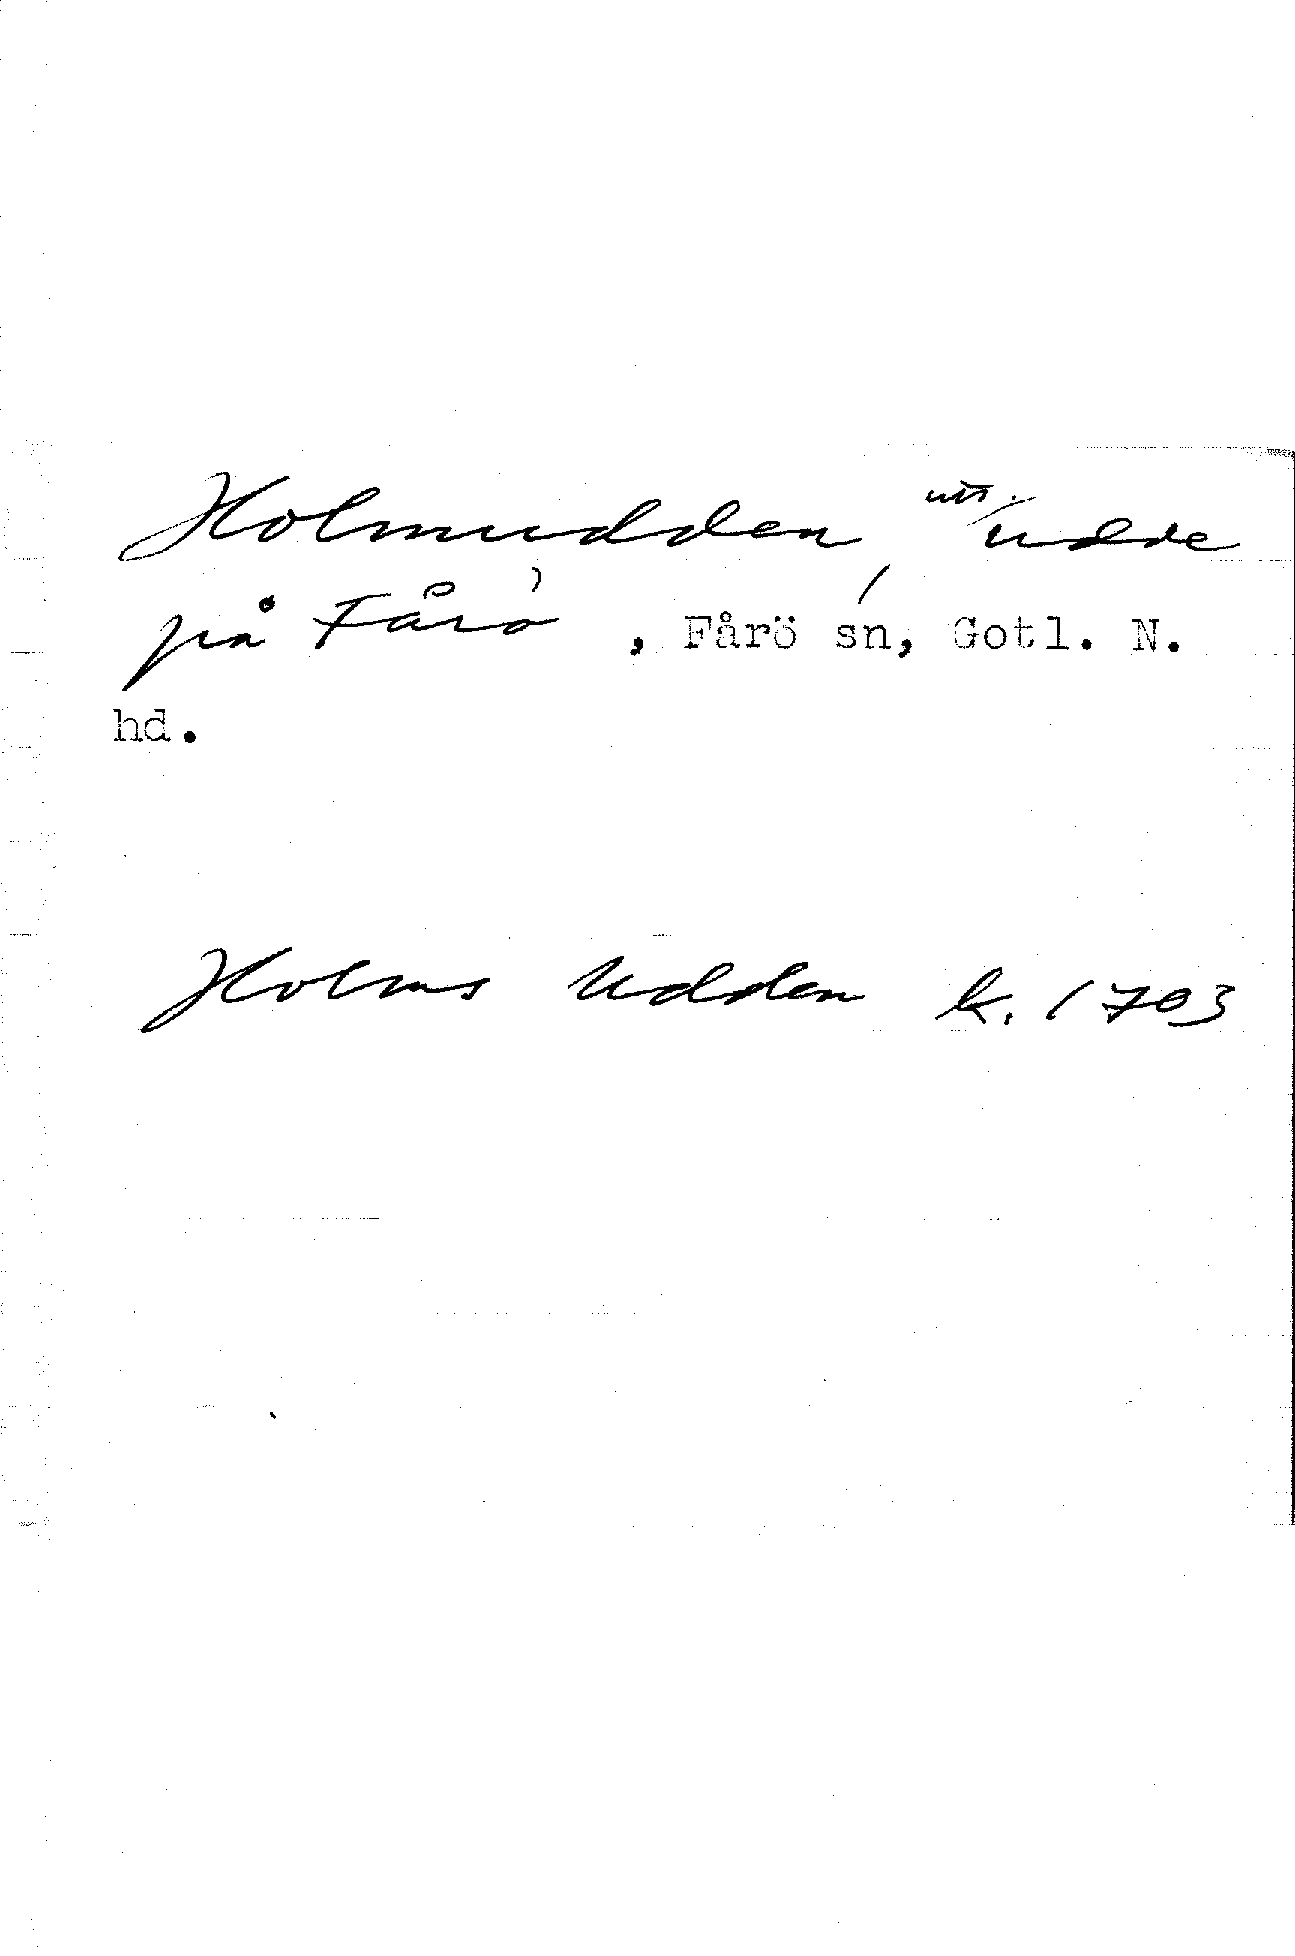 Holmudden, udde
på Fårö, Fårö sn, Gotl. N.
hd.
Holms Udden k. 1703